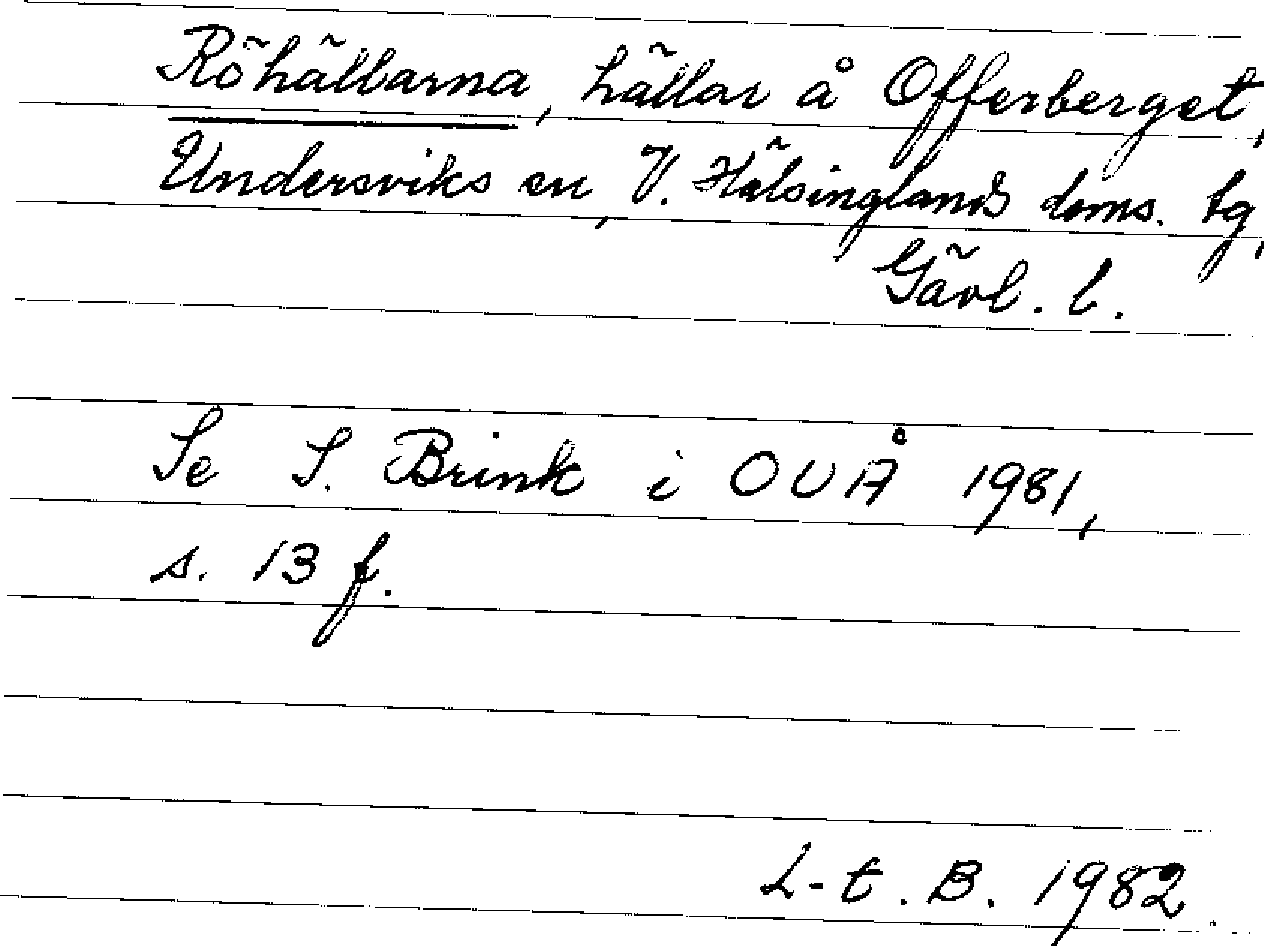 Röhällarna, hällar å Offerberget,
Undersviks sn, V. Hälsinglands doms. tg,
Gävl. l.
Se S. Brink i OUÅ 1981,
s. 13 f.
L-t. B. 1982.